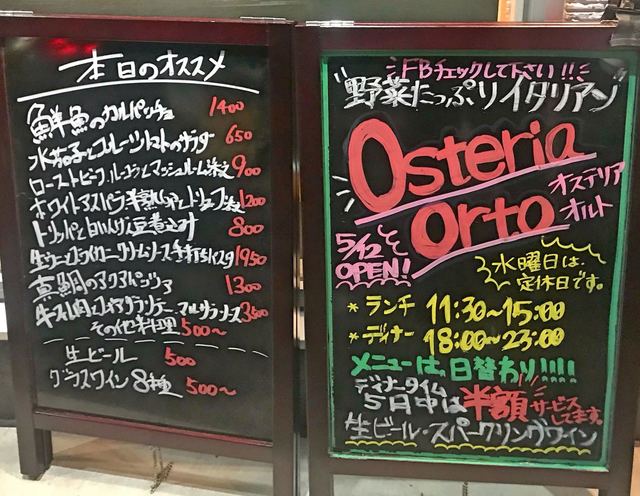 本日のオススメ
鮮魚のカルパッチョ 1400
水茄子とフルーツトマトのサラダ 650
ローストビーフ ルッコラとマッシュルーム添え 900
ホワイトアスパラ 半熟 トリュフ 1200
トリッパと白いんげん豆煮込み 800
生ウニ クリームソース 手打ちパスタ 1950
真鯛のアクアパッツァ 1300
牛 フォアグラ マルサラソース 3500
その他料理 500〜
生ビール 500
グラスワイン 8種 500〜
FBチェックして下さい!!
"野菜たっぷりイタリアン"
Osteria
オステリア
orto
オルト
5/12
OPEN!
水曜日は、
定休日です。
* ランチ 11:30〜15:00
* ディナー 18:00〜23:00
メニューは、日替わり!!!!
ディナータイム
5月中は半額サービスしてます。
生ビール・スパークリングワイン